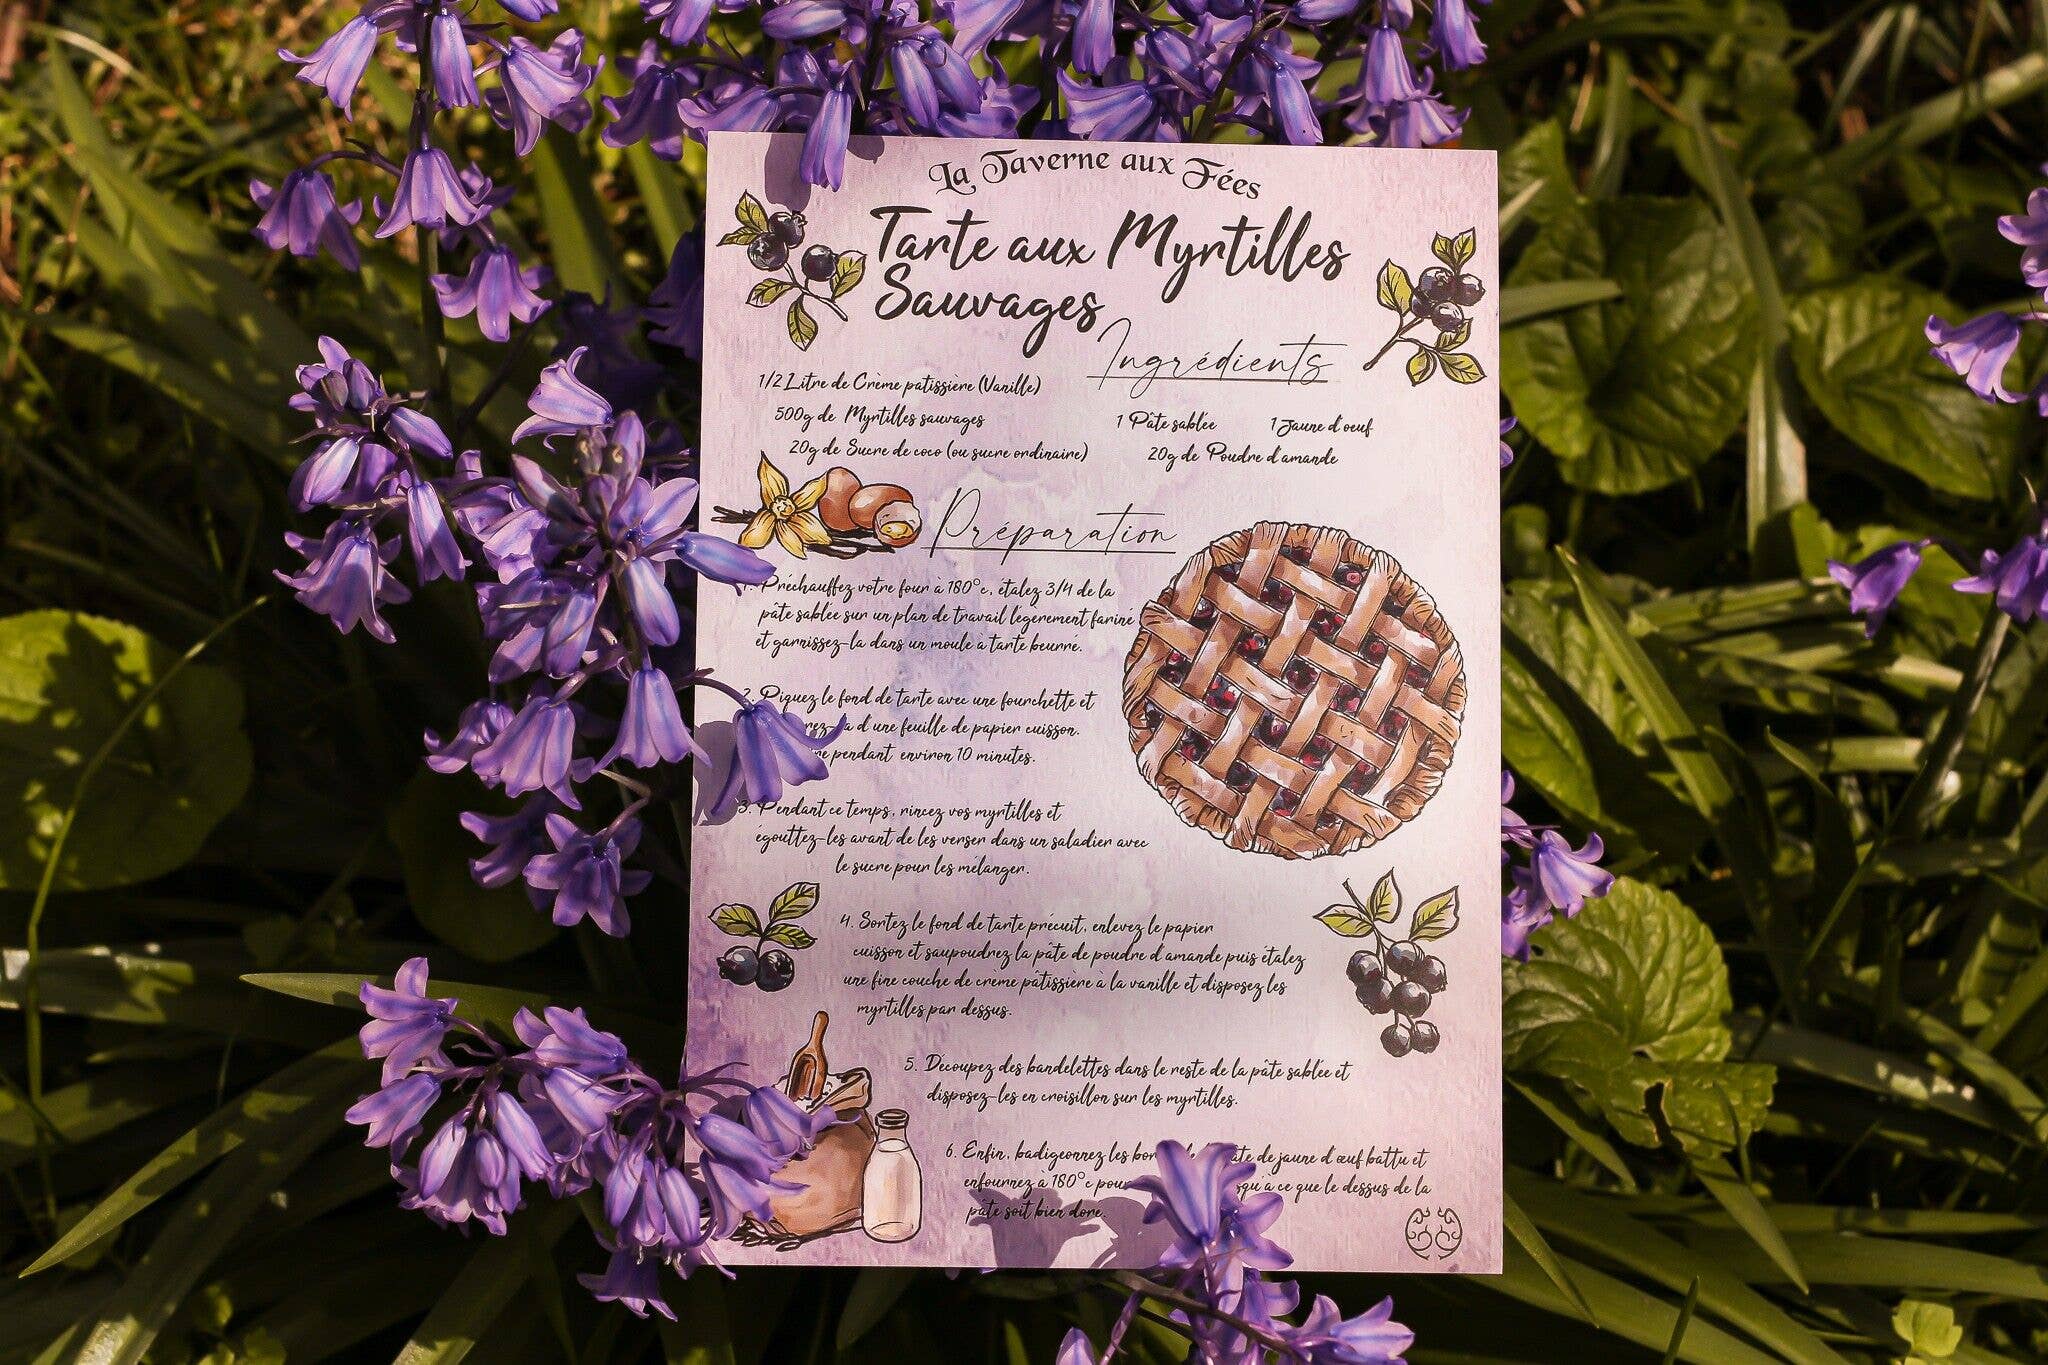 La Taverne aux Fées
Tarte aux Myrtilles
Sauvages
Ingrédients
1/2 Litre de Crème patissière (Vanille)
500g de Myrtilles sauvages
20g de Sucre de coco (ou sucre ordinaire)
1 Pâte sablée
1 Jaune d'oeuf
20g de Poudre d'amande
Préparation
1. Préchauffez votre four à 180°c, étalez 3/4 de la
pâte sablée sur un plan de travail légerement fariné
et garnissez-la dans un moule a tarte beurré.
2. Piquez le fond de tarte avec une fourchette et
d'une feuille de papier cuisson.
pendant environ 10 minutes.
3. Pendant ce temps, rincez vos myrtilles et
égouttez-les avant de les verser dans un saladier avec
le sucre pour les mélanger.
4. Sortez le fond de tarte précuit, enlevez le papier
cuisson et saupoudrez la pâte de poudre d'amande puis étalez
une fine couche de crème pâtissière à la vanille et disposez les
myrtilles par dessus.
5. Découpez des bandelettes dans le reste de la pâte sablée et
disposez-les en croisillon sur les myrtilles.
6. Enfin, badigeonnez les de jaune d'œuf battu et
enfournez a 180°c pour à ce que le dessus de la
pâte soit bien doré.